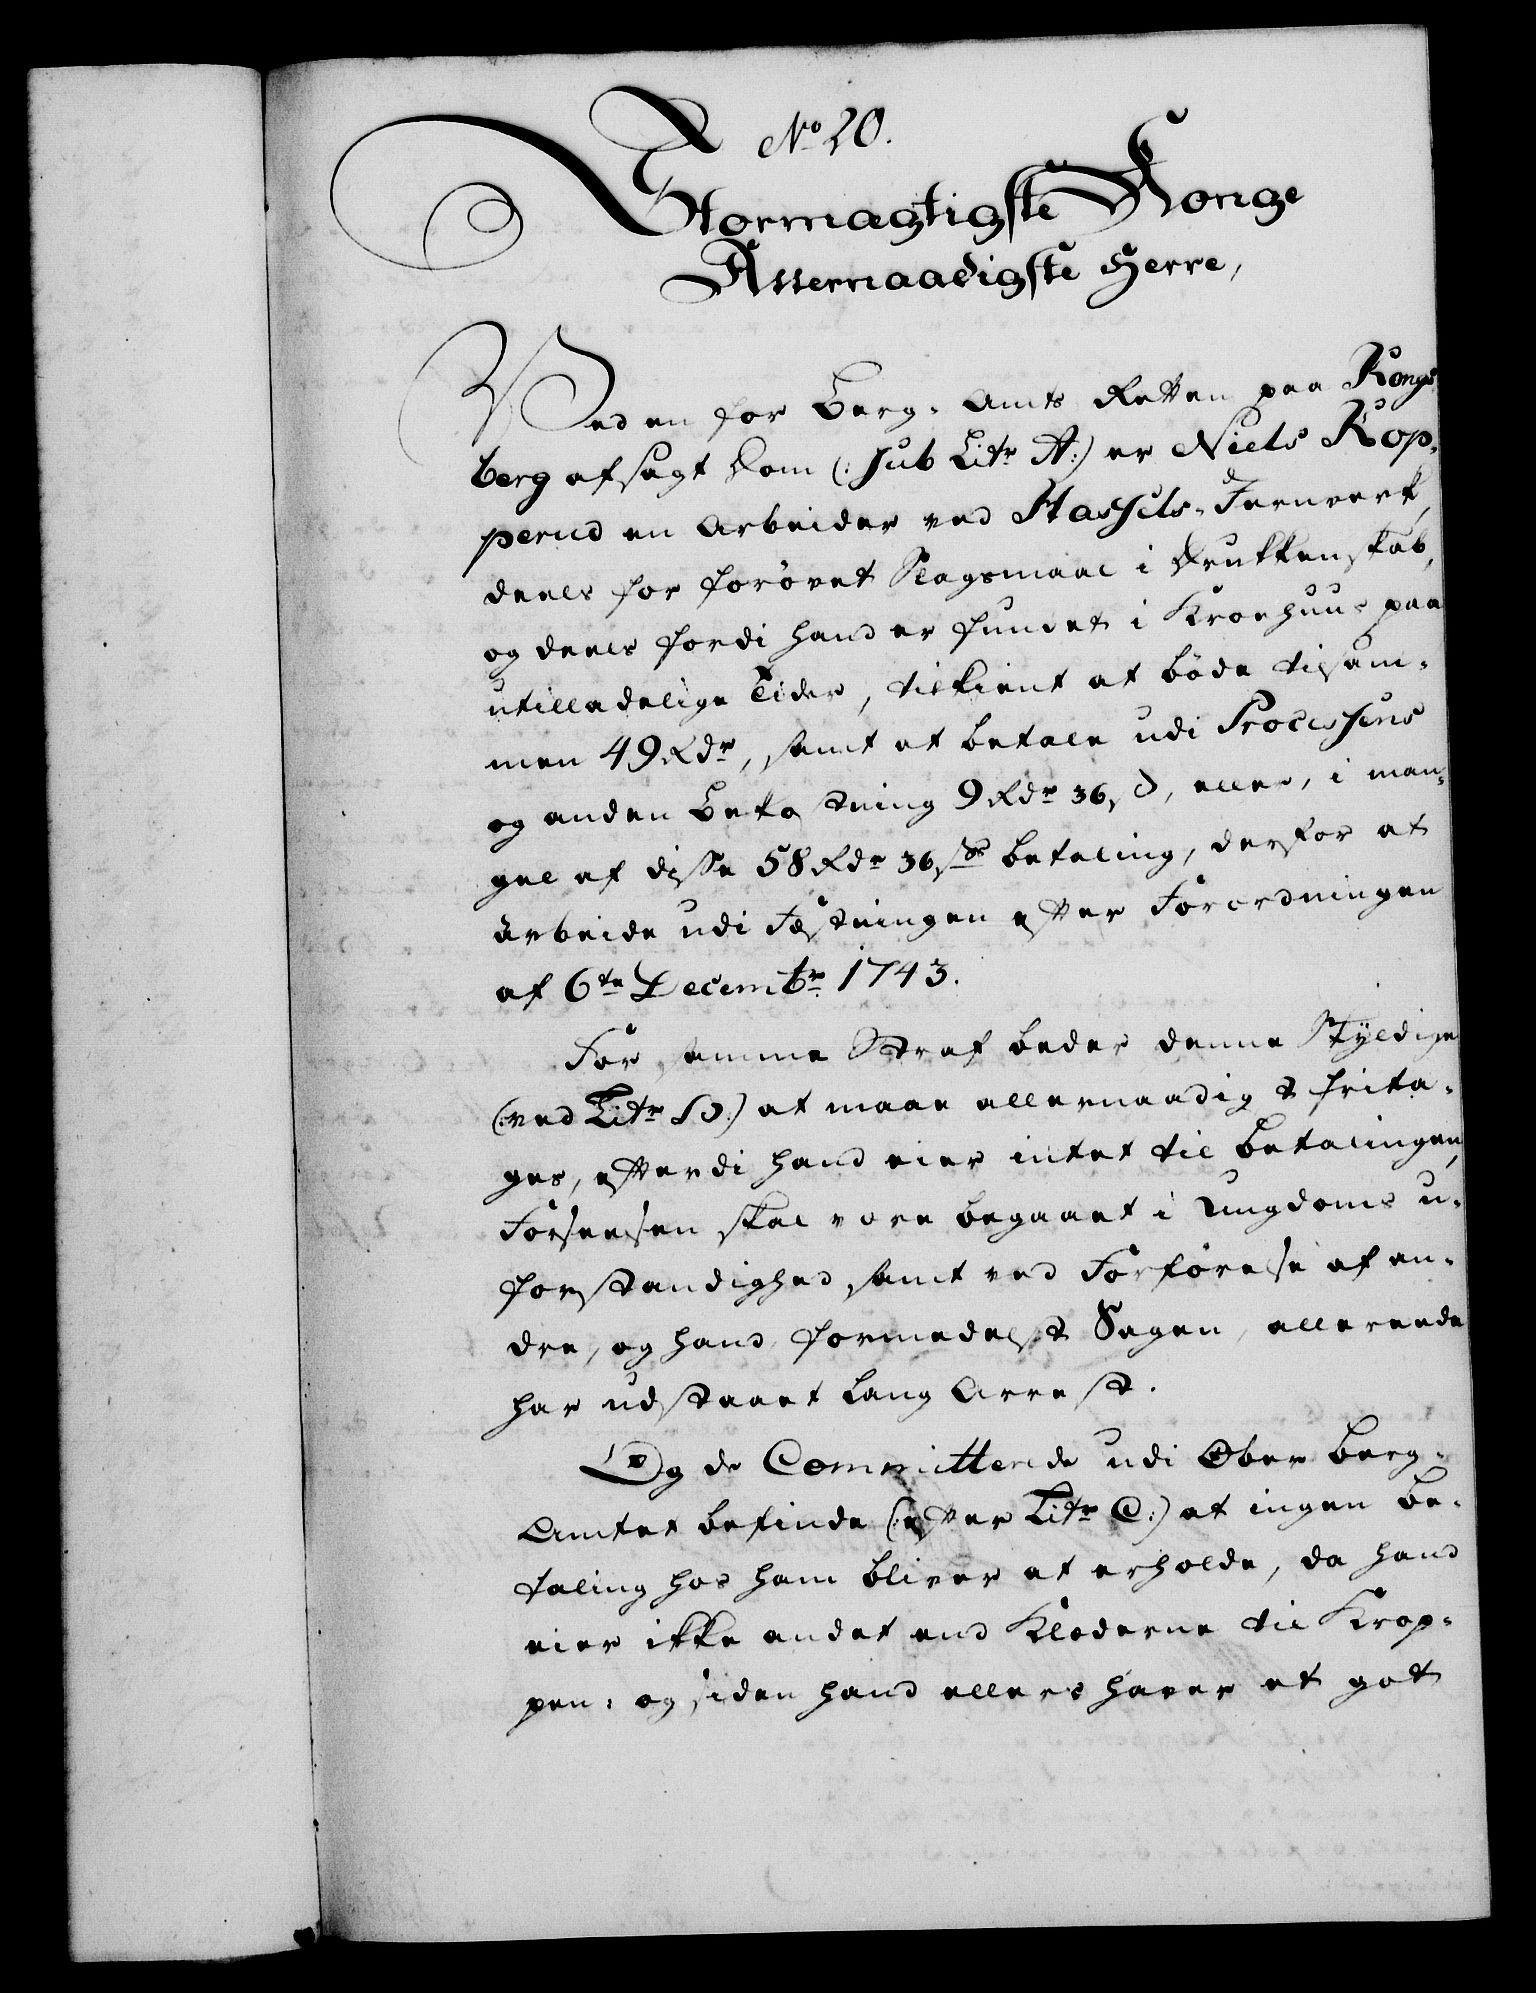 No 20.
Stormægtigste Konge
Allernaadigste Herre,
Ved en for Berg-Amts Retten paa Kongs-
berg afsagt Dom (: sub Litr A:) er Niels Kop-
perud en Arbeider ved Hassels-Jernverk,
deels for forøvet Slagsmaal i Drukkenskab,
og deels fordi hand er fundet i Kroehuus paa
utilladelige Tider, tilkient at bøde tilsam-
men 49 Rdr, samt at betale udi Processens
og anden Bekostning 9 Rdr 36 s, eller, i man-
gel af disse 58 Rdr 36 s betaling, derfor at
arbeide udi Fæstningen efter Forordningen
af 6te Decembr 1743.
For samme Straf beder denne Skyldige
(:ved Litr B:) at maae allernaadigst frita-
ges, efterdi hand eier intet til betalingen,
Forseelsen skal være begaaet i Ungdoms u-
forstandighed samt ved Forførelse af an-
dre, og hand formedelst Sagen, allereede
har udstaaet lang Arrest.
Og de Committerede udi Ober Berg-
Amtet befinde (:efter Litr C:) at ingen be-
taling hos ham bliver at erholde, da hand
eier ikke andet end Klæderne til Krop-
pen; og siden hand ellers haver et got